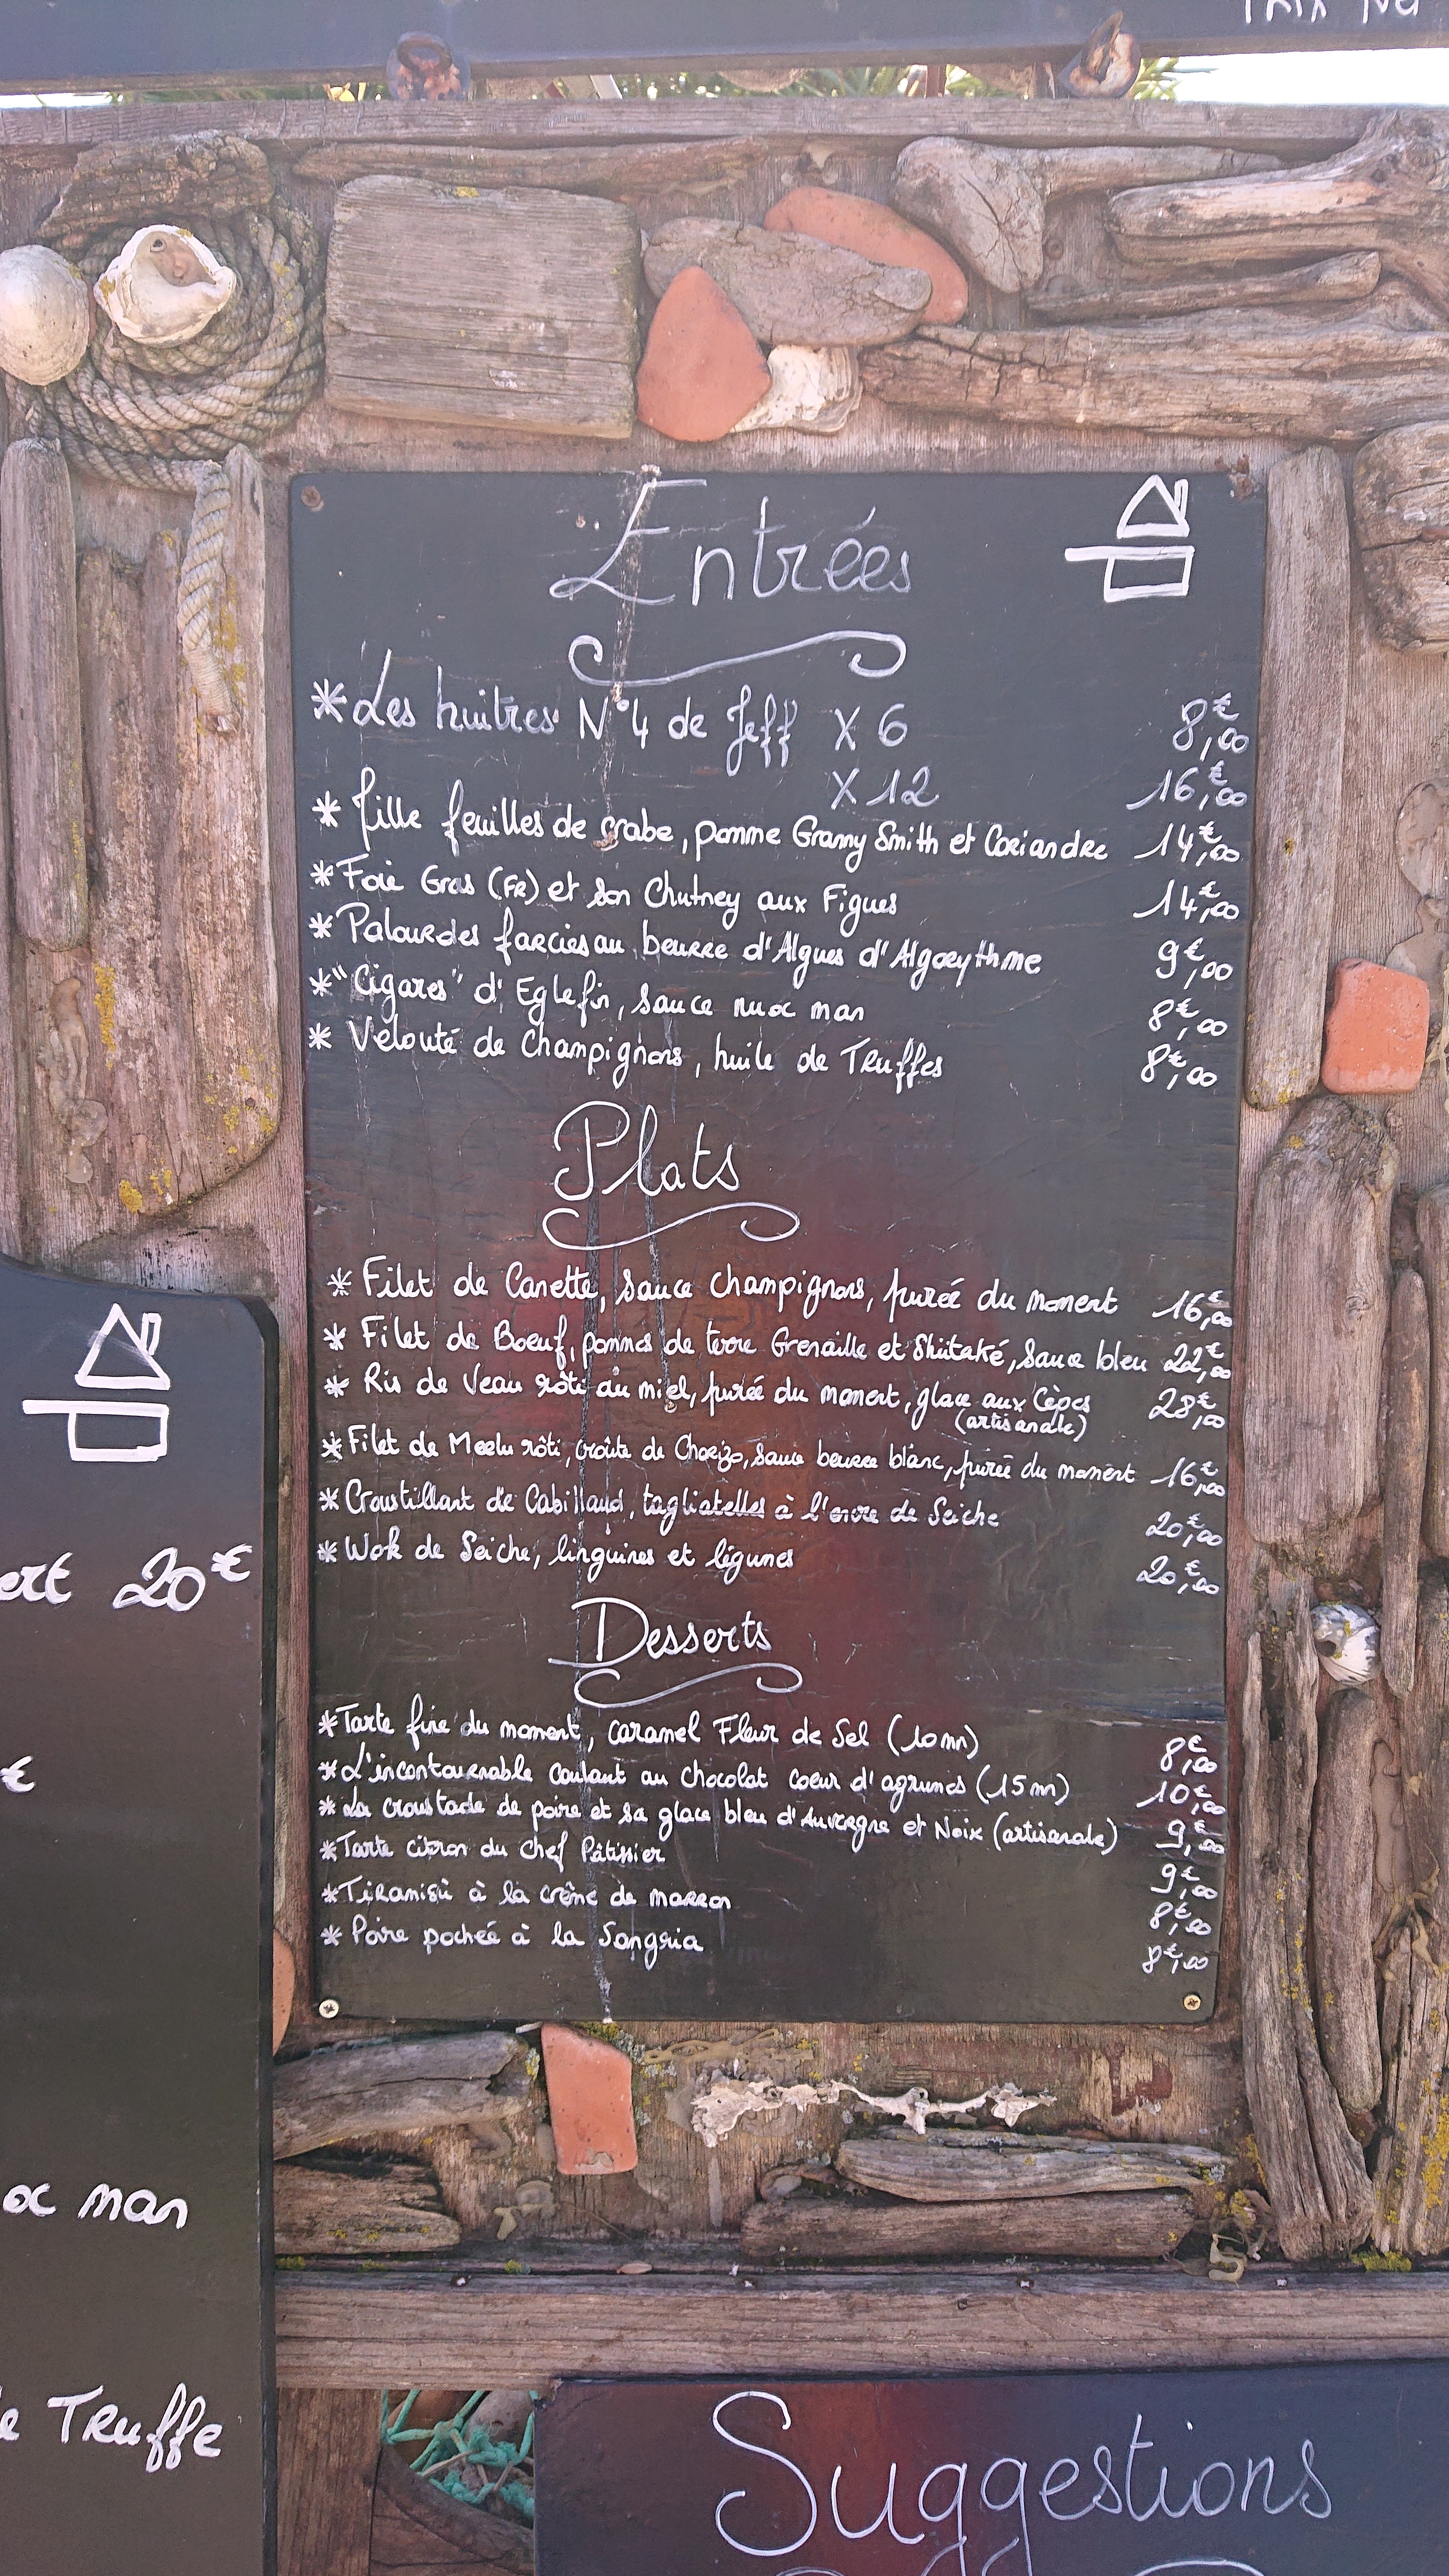 Entrées
*Les huitres N°4 de Jeff X 6 8€,00
X 12 16€,00
* Mille feuilles de crabe, pomme Granny Smith et Coriandre 14€,00
*Foie Gras (FR) et son Chutney aux Figues 14€,00
*Palourdes farcies au beurre d'Algues d'Algorythme 9€,00
*"Cigares" d'Eglefin, sauce nuoc man 8€,00
* Velouté de Champignons, huile de Truffes 8€,00
Plats
* Filet de Canette, sauce champignons, purée du moment 16€,00
* Filet de Boeuf, pommes de terre Grenaille et Shiitaké, sauce bleu 22€,00
* Ris de Veau rôti au miel, purée du moment, glace aux Cèpes 28€,00
(artisanale)
*Filet de Merlu rôti, croûte de Chorizo, sauce beurre blanc, purée du moment 16€,00
*Croustillant de Cabillaud, tagliatelles à l'encre de Seiche 20€,00
*Wok de Seiche, linguines et légumes 20€,00
Desserts
*Tarte fine du moment, caramel Fleur de Sel (10mn) 8€,00
*L'incontournable coulant au chocolat coeur d'agrumes (15mn) 10€,00
*La croustade de poire et sa glace bleu d'Auvergne et Noix (artisanale) 9€,00
*Tarte citron du chef Pâtissier 9€,00
*Tiramisù à la crème de marron 8€,00
* Poire pochée à la Sangria 8€,00
ert 20€
€
oc man
Truffe
Suggestions